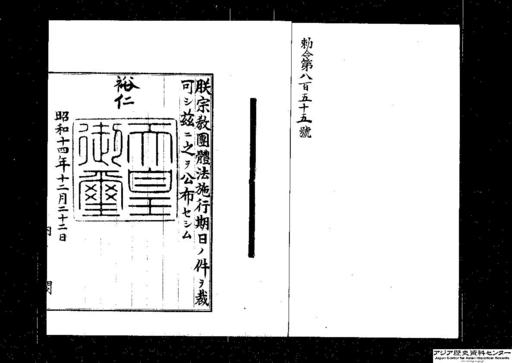 勅令第八百五十五號
朕宗教團體法施行期日ノ件ヲ裁
可シ玆ニ之ヲ公布セシム
裕仁
天皇御璽
昭和十四年十二月二十二日
内閣
アジア歴史資料センター
Japan Center for Asian Historical Records